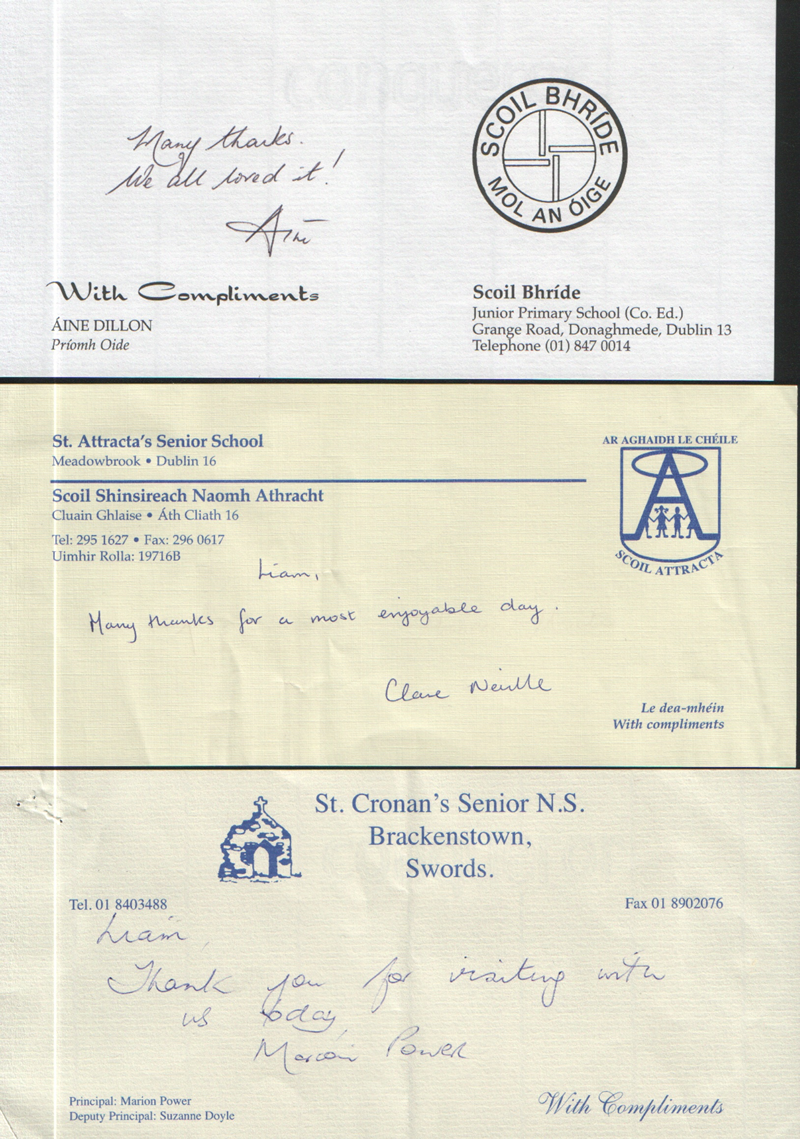 Many thanks.
We all loved it!
Áine
SCOIL BHRÍDE
MOL AN ÓIGE
With Compliments
ÁINE DILLON
Príomh Oide
Scoil Bhríde
Junior Primary School (Co. Ed.)
Grange Road, Donaghmede, Dublin 13
Telephone (01) 847 0014
St. Attracta's Senior School
Meadowbrook • Dublin 16
Scoil Shinsireach Naomh Athracht
Cluain Ghlaise • Áth Cliath 16
Tel: 295 1627 • Fax: 296 0617
Uimhir Rolla: 19716B
AR AGHAIDH LE CHÉILE
SCOIL ATTRACTA
Liam,
Many thanks for a most enjoyable day.
Clare Neville
Le dea-mhéin
With compliments
St. Cronan's Senior N.S.
Brackenstown,
Swords.
Tel. 01 8403488
Fax 01 8902076
Liam,
Thank you for visiting with
us today,
Marion Power
Principal: Marion Power
Deputy Principal: Suzanne Doyle
With Compliments